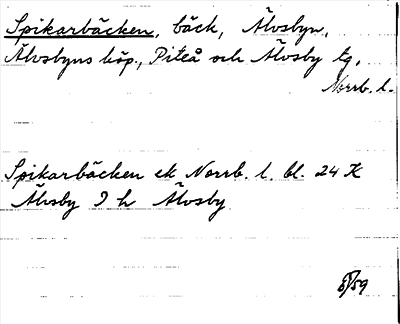 Spikarbäcken, bäck, Älvsbyn,
Älvsbyns köp., Piteå och Älvsby tg,
Norrb. l.
Spikarbäcken ek Norrb. l. bl. 24 K
Älvsby 9 h Älvsby